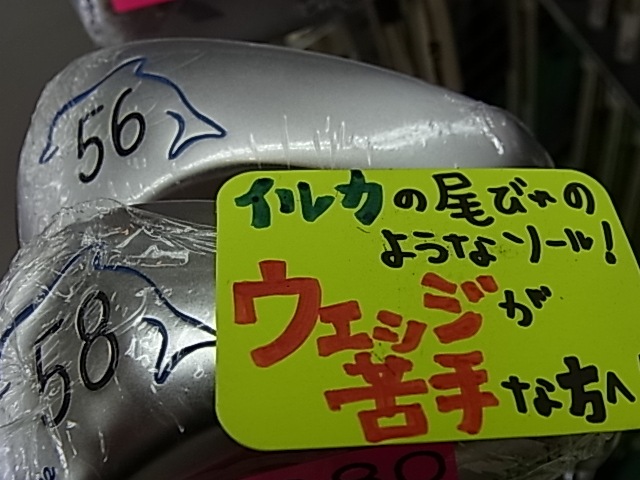 56
58
イルカの尾びれの
ようなソール!
ウェッジが
苦手な方へ